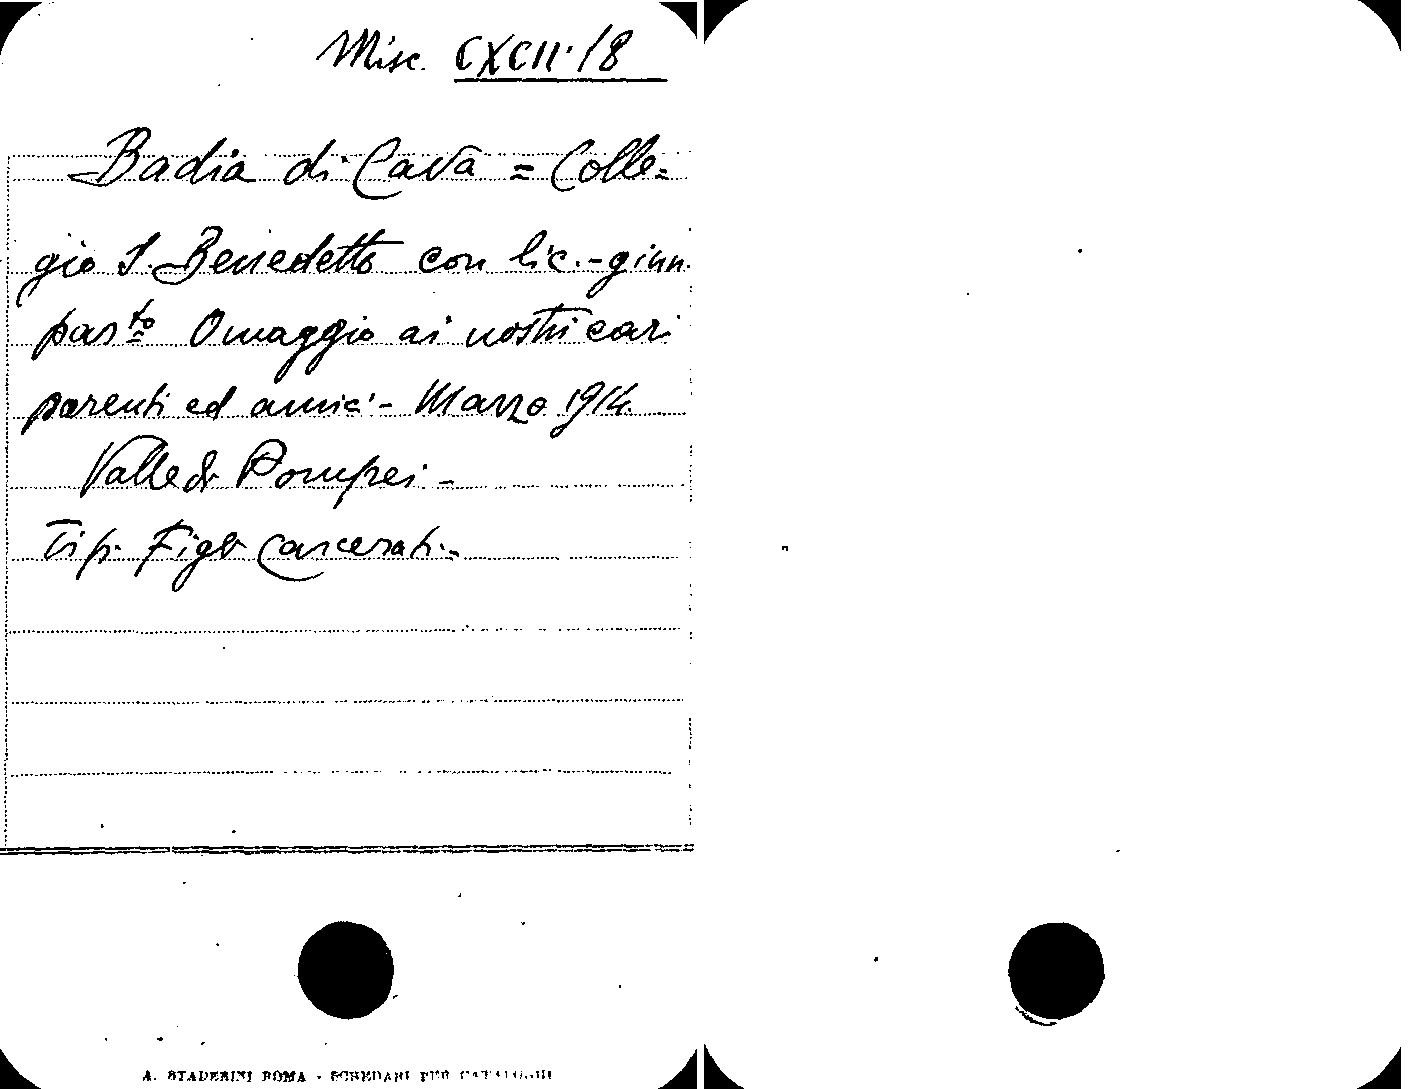 Misc. CXCII·18
Badia di Cava = Colle=
gio S. Benedetto con lic.-ginn.
par.to Omaggio ai nostri cari
parenti ed amici - Marzo 1914.
Valle di Pompei -
Tip. Figli Carcerati. -
A. STADERINI ROMA - SCHEDARI PER CATALOGHI